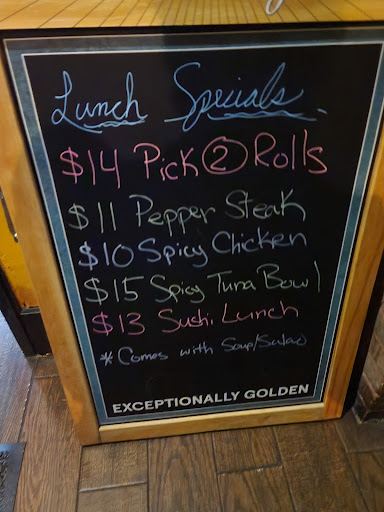 Lunch Specials
$14 Pick 2 Rolls
$11 Pepper Steak
$10 Spicy Chicken
$15 Spicy Tuna Bowl
$13 Sushi Lunch
* Comes with Soup/Salad
EXCEPTIONALLY GOLDEN